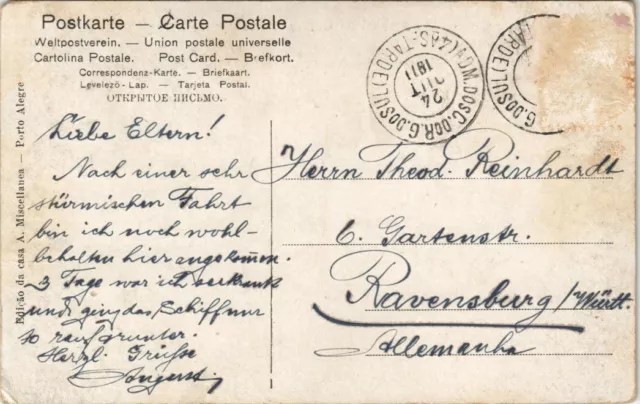 Postkarte — Carte Postale
Weltpostverein. — Union postale universelle
Cartolina Postale. Post Card. — Brefkort.
Correspondenz-Karte. — Briefkaart.
Levelező-Lap. — Tarjeta Postal.
ОТКРЫТОЕ ПИСЬМО.
Edição da casa A. Miscellanea — Porto Alegre
Liebe Eltern!
Nach einer sehr
stürmischen Fahrt
bin ich noch wohl-
behalten hier angekommen.
3 Tage war ich seekrank
und ging das Schiff nur
so rauf & runter.
Herzl. Grüsse
August.
24
OUT
1911
G.DOSUL
Herrn Theod. Reinhardt
6. Gartenstr.
Ravensburg/Württ.
Allemanha